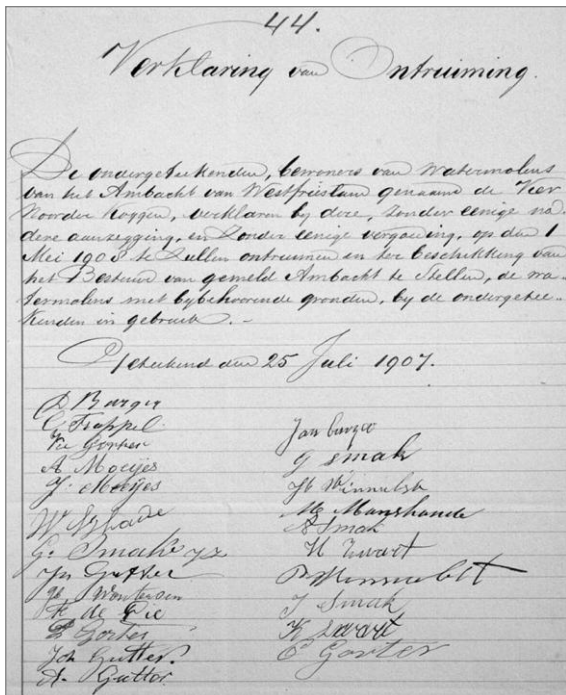 44.
Verklaring van Ontruiming.
De ondergeteekenden, bewoners van Watermolens
van het Ambacht van Westfriesland genaamd de Vier
Noorder Koggen, verklaren by deze, zonder eenige na-
dere aanzegging, en zonder eenige vergoeding, op den 1
Mei 1908 te zullen ontruimen en ter beschikking van
het Bestuur van gemeld Ambacht te stellen, de wa-
termolens met bybehoorende gronden, by de ondergetee-
kenden in gebruik. -
Geteekend den 25 Juli 1907.
D Burger
C. Trappel
Gorter
A Mooijes
J. Mooijes
W Schade
G. Smak
Jn Gutter
Wontersen
K de Pie
Gorter
Joh Gutter.
A. Gutter.
Jan burger
G Smak
Winnubst
M. Manshande
A Smak
H Zwart
Winnubst
J Smak
K Zwart
C Gorter